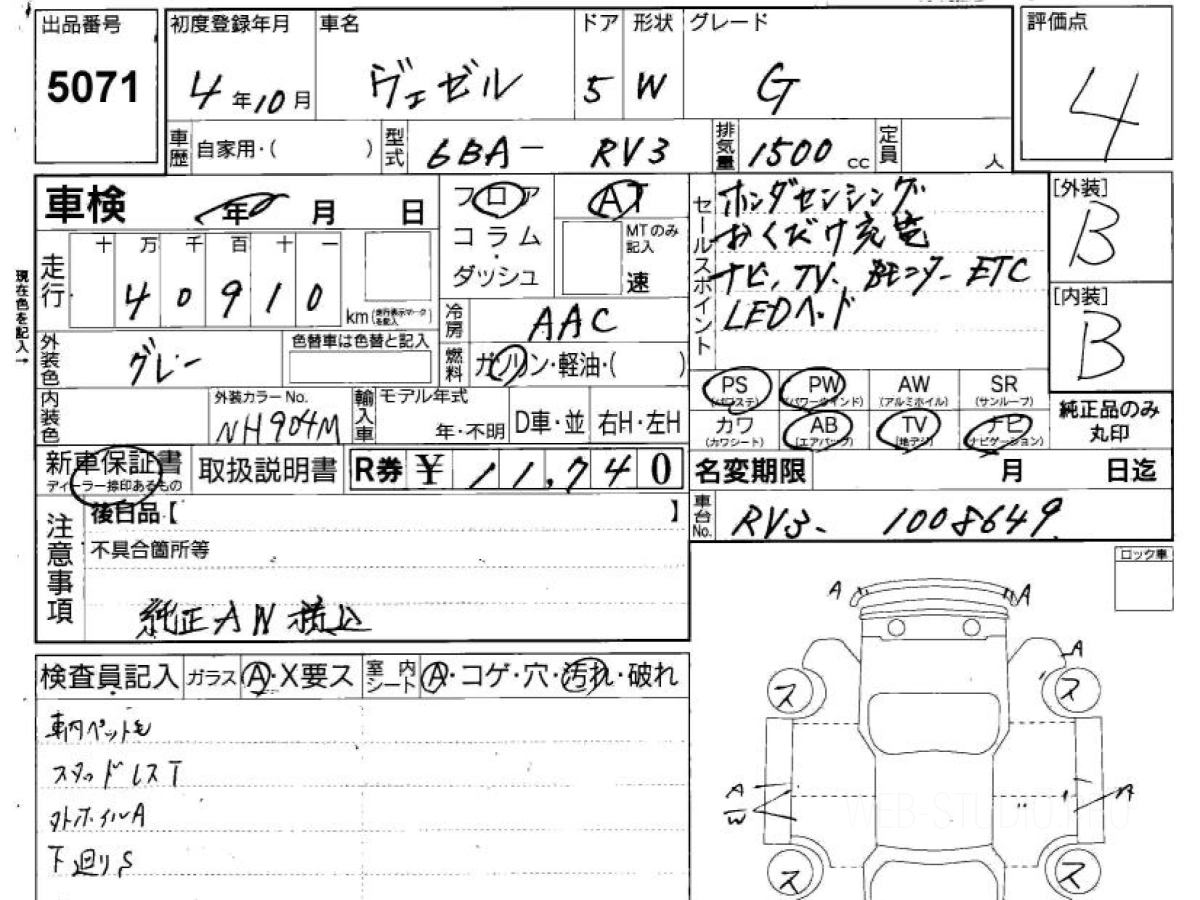 出品番号
5071
初度登録年月
4年10月
車名
ヴェゼル
ドア
5
形状
W
グレード
G
評価点
4
車歴
自家用・( )
型式
6BA- RV3
排気量
1500cc
定員
人
車検
年 月 日
フロア
コラム
・
ダッシュ
AT
MTのみ
記入
速
セールスポイント
ホンダセンシング
おくだけ充電
ナビ、TV、Bモニター ETC
LEDヘッド
[外装]
B
[内装]
B
現在色を記入→
走行
十 万 千 百 十 一
4 0 9 1 0
km(走行表示マークを記入)
冷房
AAC
燃料
ガソリン・軽油・( )
外装色
グレー
色替車は色替と記入
内装色
外装カラーNo.
NH904M
輸入車
モデル年式
年・不明
D車・並
右H・左H
PS
(パワステ)
PW
(パワーウインド)
AW
(アルミホイル)
SR
(サンルーフ)
カワ
(カワシート)
AB
(エアバック)
TV
(地デジ)
ナビ
(ナビゲーション)
純正品のみ
丸印
新車保証書
ディーラー捺印あるもの
取扱説明書
R券 ¥ 11,740
名変期限
月 日迄
車台No.
RV3- 1008649
注意事項
後日品【 】
不具合箇所等
純正AW積込
ロック車
検査員記入
ガラス
A・X要ス
室内
シート
A・コゲ・穴・汚れ・破れ
車内ペット毛
スタッドレスT
外ホイルA
下廻りS
A
A
A
ス
ス
A
W
A
ス
ス
WEB-STUDIO.PRO